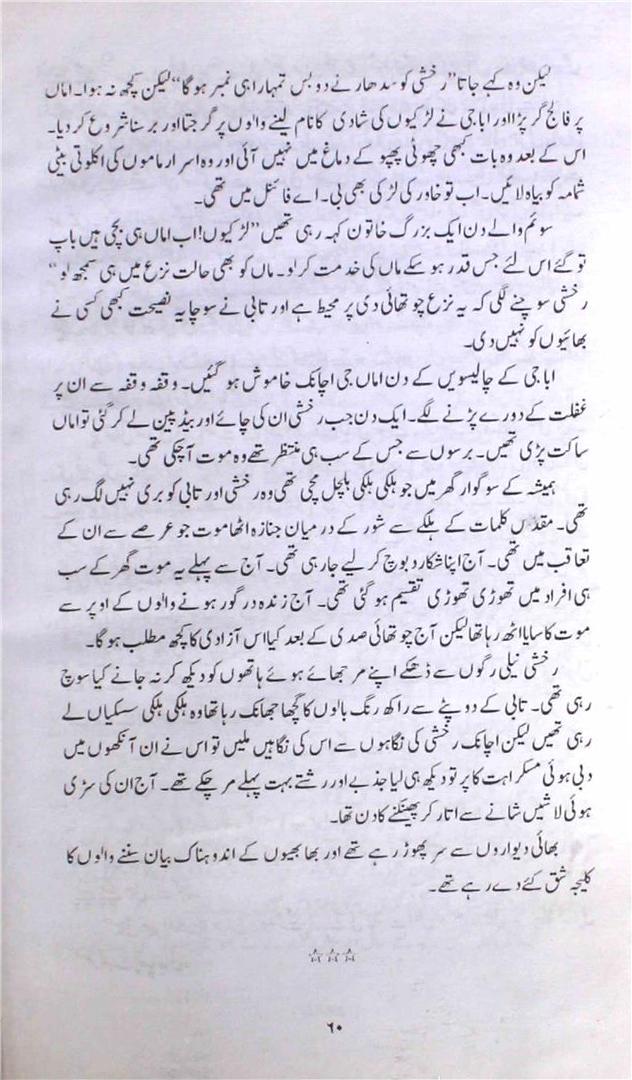 لیکن وہ کہے جاتا ”رخشی کو سدھارنے دو بس تمہارا ہی نمبر ہوگا“ لیکن کچھ نہ ہوا۔ اماں
پر فالج گر پڑا اور ابا جی نے لڑکیوں کی شادی کا نام لینے والوں پر گرجنا اور برسنا شروع کر دیا۔
اس کے بعد وہ بات کبھی چھوٹی پھپو کے دماغ میں نہیں آئی اور وہ اسرار ماموں کی اکلوتی بیٹی
شمامہ کو بیاہ لائیں۔ اب تو خاور کی لڑکی بھی بی۔ اے فائنل میں تھی۔
سوئم والے دن ایک بزرگ خاتون کہہ رہی تھیں ”لڑکیوں! اب اماں ہی بچی ہیں باپ
تو گئے اس لئے جس قدر ہو سکے ماں کی خدمت کر لو۔ ماں کو بھی حالت نزع میں ہی سمجھ لو“
رخشی سوچنے لگی کہ یہ نزع چوتھائی دی پر محیط ہے اور تابی نے سوچا یہ نصیحت کبھی کسی نے
بھائیوں کو نہیں دی۔
ابا جی کے چالیسویں کے دن اماں جی اچانک خاموش ہو گئیں۔ وقفہ وقفہ سے ان پر
غفلت کے دورے پڑنے لگے۔ ایک دن جب رخشی ان کی چائے اور بیڈ پین لے کر گئی تو اماں
ساکت پڑی تھیں۔ برسوں سے جس کے سب ہی منتظر تھے وہ موت آ چکی تھی۔
ہمیشہ کے سوگوار گھر میں جو ہلکی ہلکی ہلچل مچی تھی وہ رخشی اور تابی کو بری نہیں لگ رہی
تھی۔ مقدس کلمات کے ہلکے سے شور کے درمیان جنازہ اٹھا موت جو عرصے سے ان کے
تعاقب میں تھی۔ آج اپنا شکار دبوچ کر لیے جا رہی تھی۔ آج سے پہلے یہ موت گھر کے سب
ہی افراد میں تھوڑی تھوڑی تقسیم ہو گئی تھی۔ آج زندہ درگور ہونے والوں کے اوپر سے
موت کا سایا اٹھ رہا تھا لیکن آج چوتھائی صدی کے بعد کیا اس آزادی کا کچھ مطلب ہوگا۔
رخشی نیلی رگوں سے ڈھکے اپنے مرجھائے ہوئے ہاتھوں کو دیکھ کر نہ جانے کیا سوچ
رہی تھی۔ تابی کے دوپٹے سے راکھ رنگ بالوں کا گچھا جھانک رہا تھا وہ ہلکی ہلکی سسکیاں لے
رہی تھیں لیکن اچانک رخشی کی نگاہوں سے اس کی نگاہیں ملیں تو اس نے ان آنکھوں میں
دبی ہوئی مسکراہٹ کا پرتو دیکھ ہی لیا جذبے اور رشتے بہت پہلے مر چکے تھے۔ آج ان کی سڑی
ہوئی لاشیں شانے سے اتار کر پھینکنے کا دن تھا۔
بھائی دیواروں سے سر پھوڑ رہے تھے اور بھابھیوں کے اندوہناک بیان سننے والوں کا
کلیجہ شق کئے دے رہے تھے۔
☆☆☆
۶۰